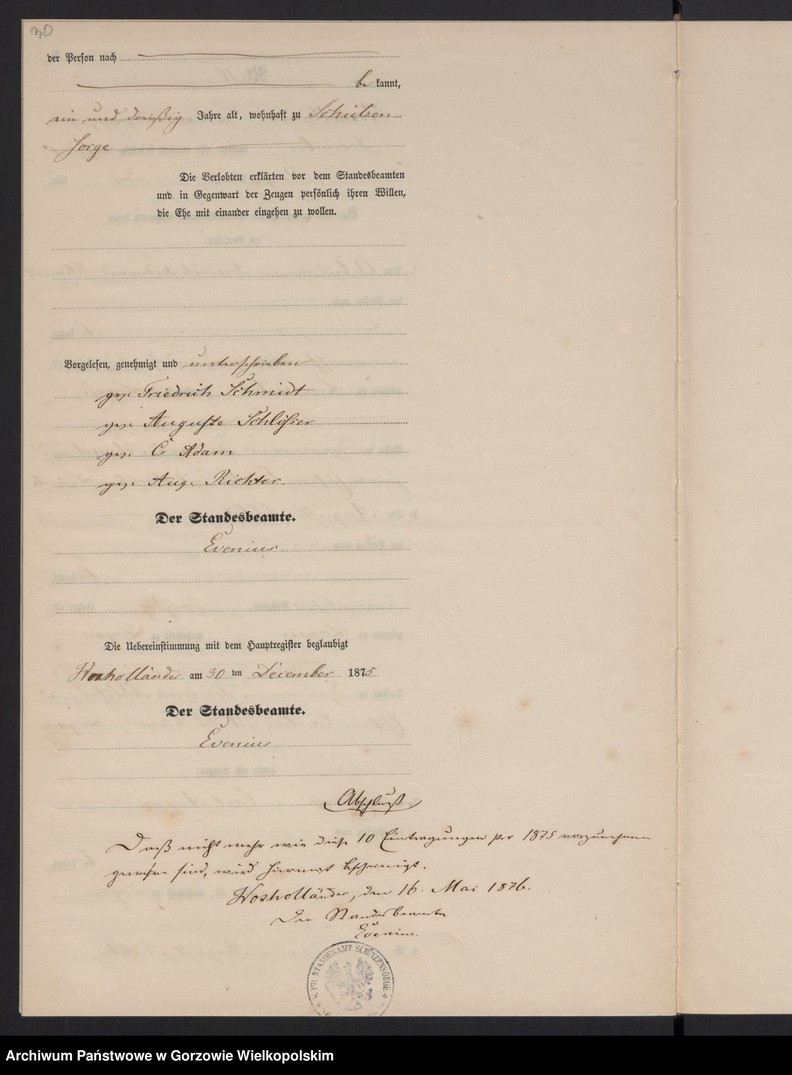 30
der Person nach
be kannt,
ein und dreißig Jahre alt, wohnhaft zu Schützen
sorge
Die Verlobten erklärten vor dem Standesbeamten
und in Gegenwart der Zeugen persönlich ihren Willen,
die Ehe mit einander eingehen zu wollen.
Vorgelesen, genehmigt und unterschrieben
gez. Friedrich Schmidt
gez. Auguste Schlösser
gez. C Adam
gez. Aug. Richter.
Der Standesbeamte.
Evenius.
Die Uebereinstimmung mit dem Hauptregister beglaubigt
Woxholländer am 30 ten December 1875
Der Standesbeamte.
Evenius
Abschluß.
Daß nicht mehr wie diese 10 Eintragungen per 1875 vorzunehmen
gewesen sind, wird hiermit bescheinigt.
Woxholländer, den 16. Mai 1876.
Der Standesbeamte
Evenius.
STANDESAMT SCHÜTZENSORGE
Archiwum Państwowe w Gorzowie Wielkopolskim